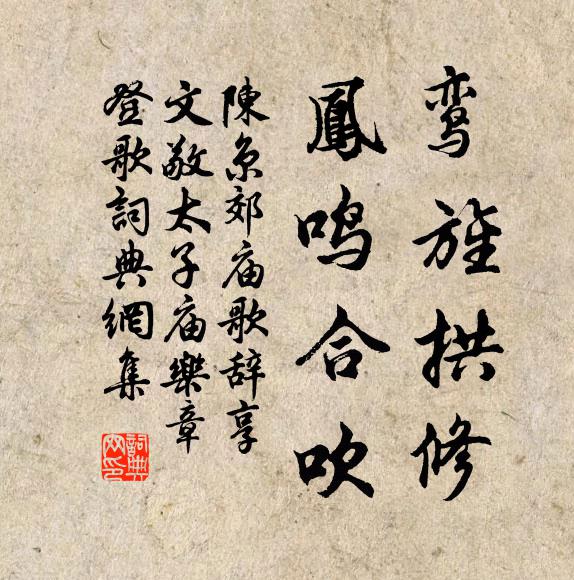 鸾旌拱修
鳳鸣合吹
陳京郊庙歌辞享
文敬太子庙樂章
登歌詞典網集
詞典网印